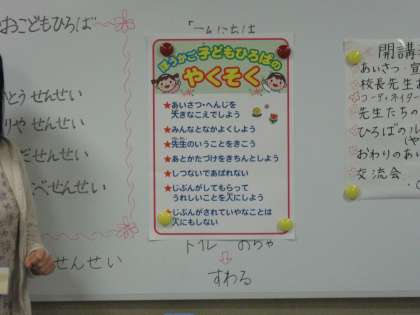 おこどもひろば
とう せんせい
りや せんせい
だ せんせい
べ せんせい
せんせい
ほうかご 子どもひろばの
やくそく
★あいさつ・へんじを
大きなこえでしよう
★みんなとなかよくしよう
★先生のいうことをきこう
★あとかたづけをきちんとしよう
★しつないであばれない
★じぶんがしてもらって
うれしいことを人にしよう
★じぶんがされていやなことは
人にもしない
トイレ おちゃ
↓
すわる
開講
あいさつ・宣
校長先生
コーディネイター
先生たちの
ひろばのル
おわりのあい
交流会